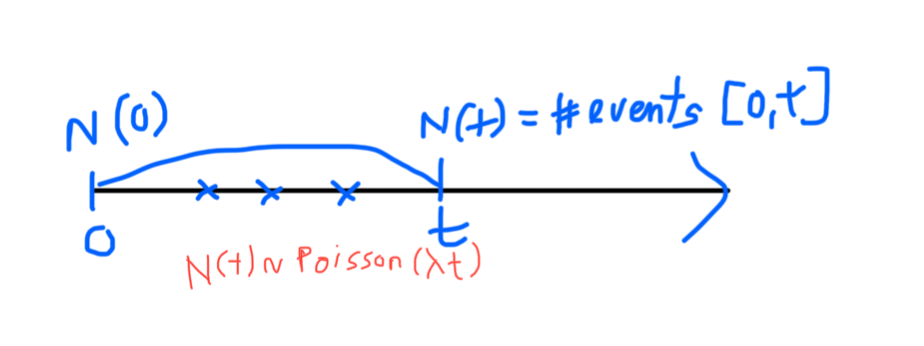 N(0)
N(t) = # events [0,t]
0
t
N(t) ~ Poisson(λt)